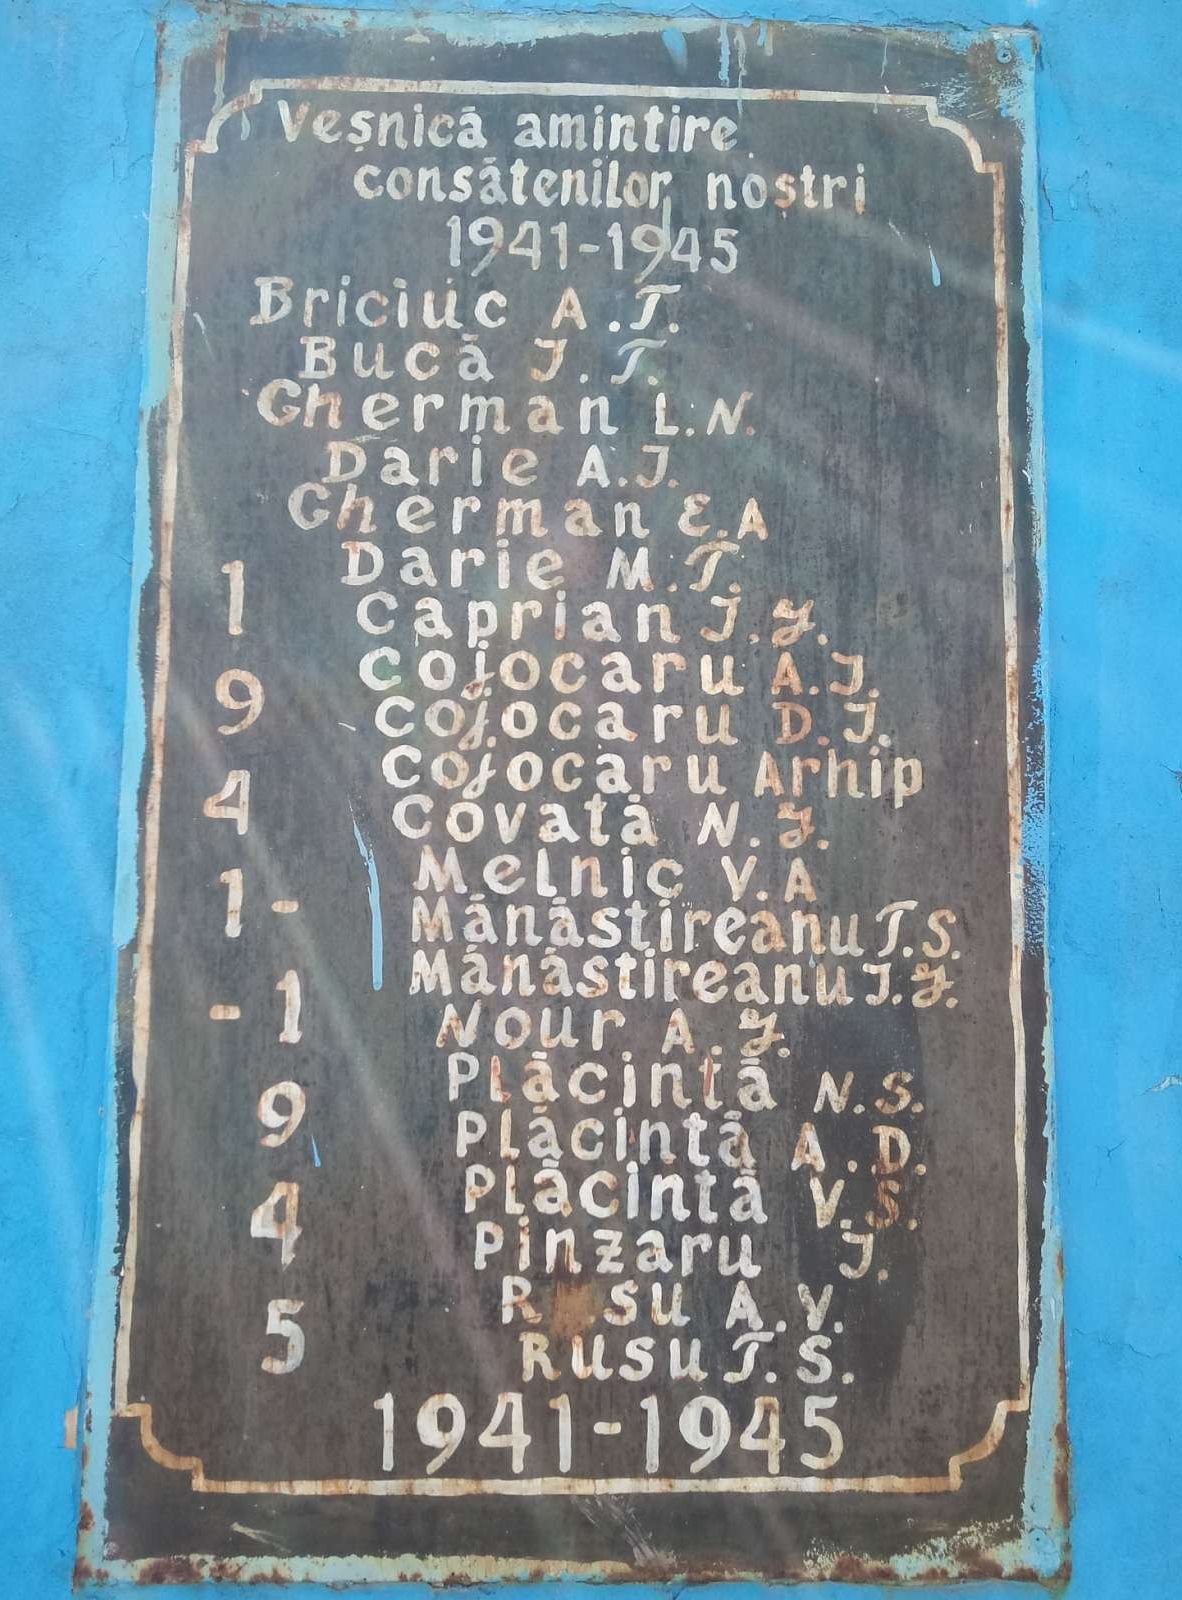 Veșnică amintire
consătenilor noștri
1941-1945
Briciuc A.T.
Bucă J.T.
Gherman L.N.
Darie A.J.
Gherman E.A
Darie M.T.
Caprian J.Y.
Cojocaru A.J.
Cojocaru D.J.
Cojocaru Arhip
Covată N.Y.
Melnic V.A
Mănăstireanu T.S.
Mănăstireanu J.Y.
Nour A.Y.
Plăcintă N.S.
Plăcintă A.D.
Plăcintă V.S.
Pinzaru J.
R su A.V.
Rusu T.S.
1941-1945
1
9
4
1-
-1
9
4
5